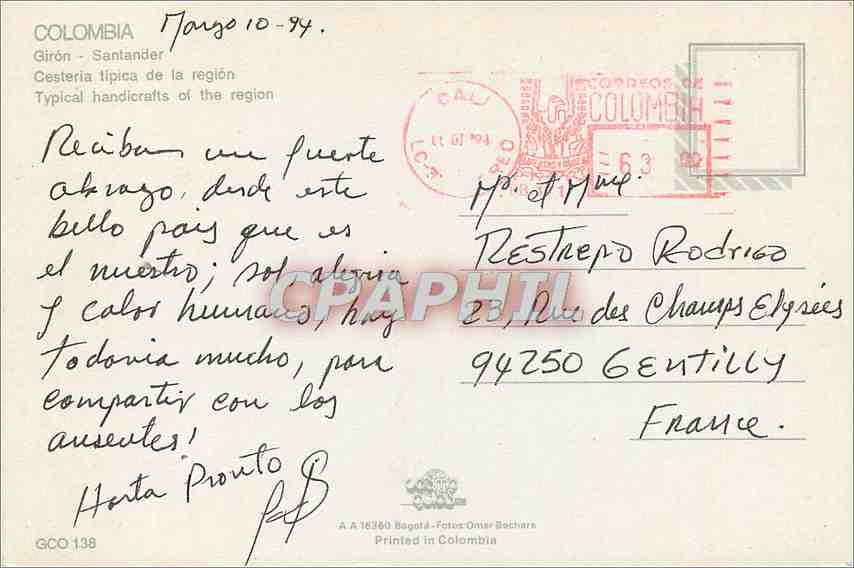 COLOMBIA
Marzo 10-94.
Girón - Santander
Cestería típica de la región
Typical handicrafts of the region
Reciban un fuerte
abrazo, desde este
bello pais que es
el nuestro; sol, alegria
y calor humano, hay
todavia mucho, para
compartir con los
ausentes!
Hasta Pronto
GCO 138
CALI
CORREOS DE
COLOMBIA
63
Mr. et Mme.
RESTREPO RODRIGO
23, Rue des Champs Elysées
94250 GENTILLY
FRANCE.
CPAPHIL
A.A 16360 Bogotá - Fotos: Omar Bechara
Printed in Colombia